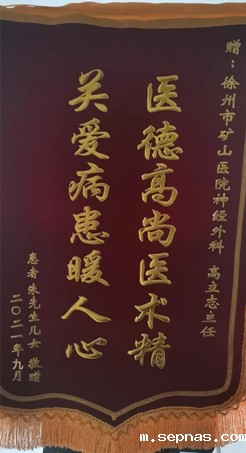 赠：徐州市矿山医院神经外科 高立志主任
医德高尚医术精
关爱病患暖人心
患者 朱先生儿女 敬赠
二〇二一年九月
m.sepnas.com